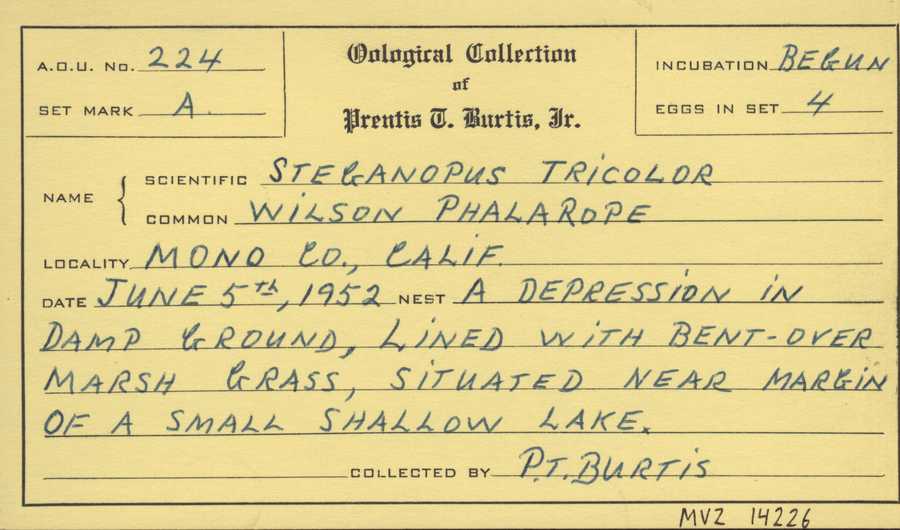 A.O.U. No. 224
SET MARK A.
Oological Collection
of
Prentis T. Burtis, Jr.
INCUBATION BEGUN
EGGS IN SET 4
NAME
SCIENTIFIC STEGANOPUS TRICOLOR
COMMON WILSON PHALAROPE
LOCALITY MONO CO., CALIF.
DATE JUNE 5th, 1952 NEST A DEPRESSION IN
DAMP GROUND, LINED WITH BENT-OVER
MARSH GRASS, SITUATED NEAR MARGIN
OF A SMALL SHALLOW LAKE.
COLLECTED BY P.T. BURTIS
MVZ 14226